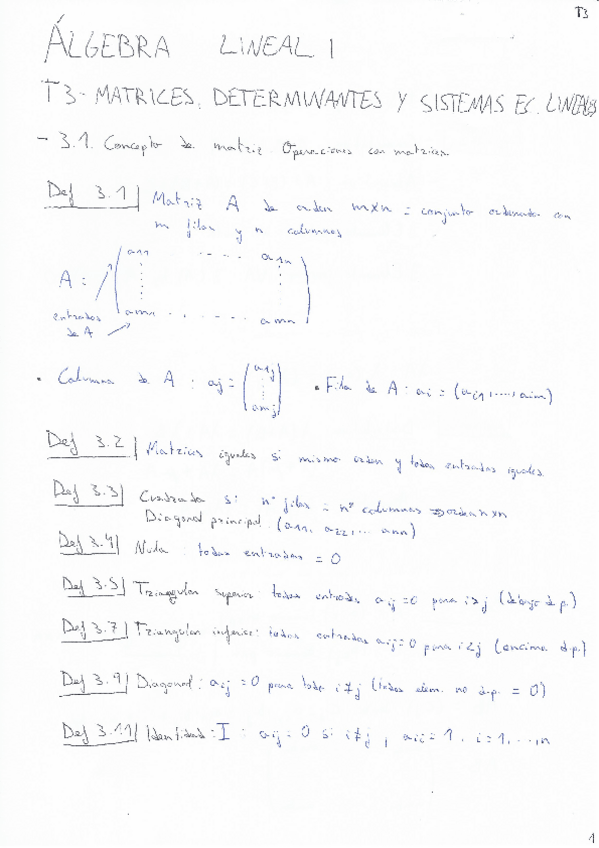 T3
ÁLGEBRA LINEAL 1
T3- MATRICES, DETERMINANTES Y SISTEMAS EC. LINEALES
- 3.1. Concepto de matriz. Operaciones con matrices.
Def 3.1 | Matriz A de orden m×n = conjunto ordenado con
m filas y n columnas
a11 ---- a1n
A =
entradas
de A
am1 ...... amn
• Columna de A : aj = (a1j ⋮ amj) • Fila de A : ai = (ai1, ..., ain)
Def 3.2 | Matrices iguales si mismo orden y todas entradas iguales
Def 3.3 | Cuadrada si nº filas = nº columnas => orden n×n
Diagonal principal (a11, a22, ... ann)
Def 3.4 | Nula : todas entradas = 0
Def 3.5 | Triangular superior: todas entradas aij = 0 para i>j (debajo d.p.)
Def 3.7 | Triangular inferior: todas entradas aij = 0 para i<j (encima d.p.)
Def 3.9 | Diagonal : aij = 0 para todo i≠j (todos elem. no d.p. = 0)
Def 3.11 | Identidad : I : aij = 0 si i≠j , aii = 1, i=1,...,n
1